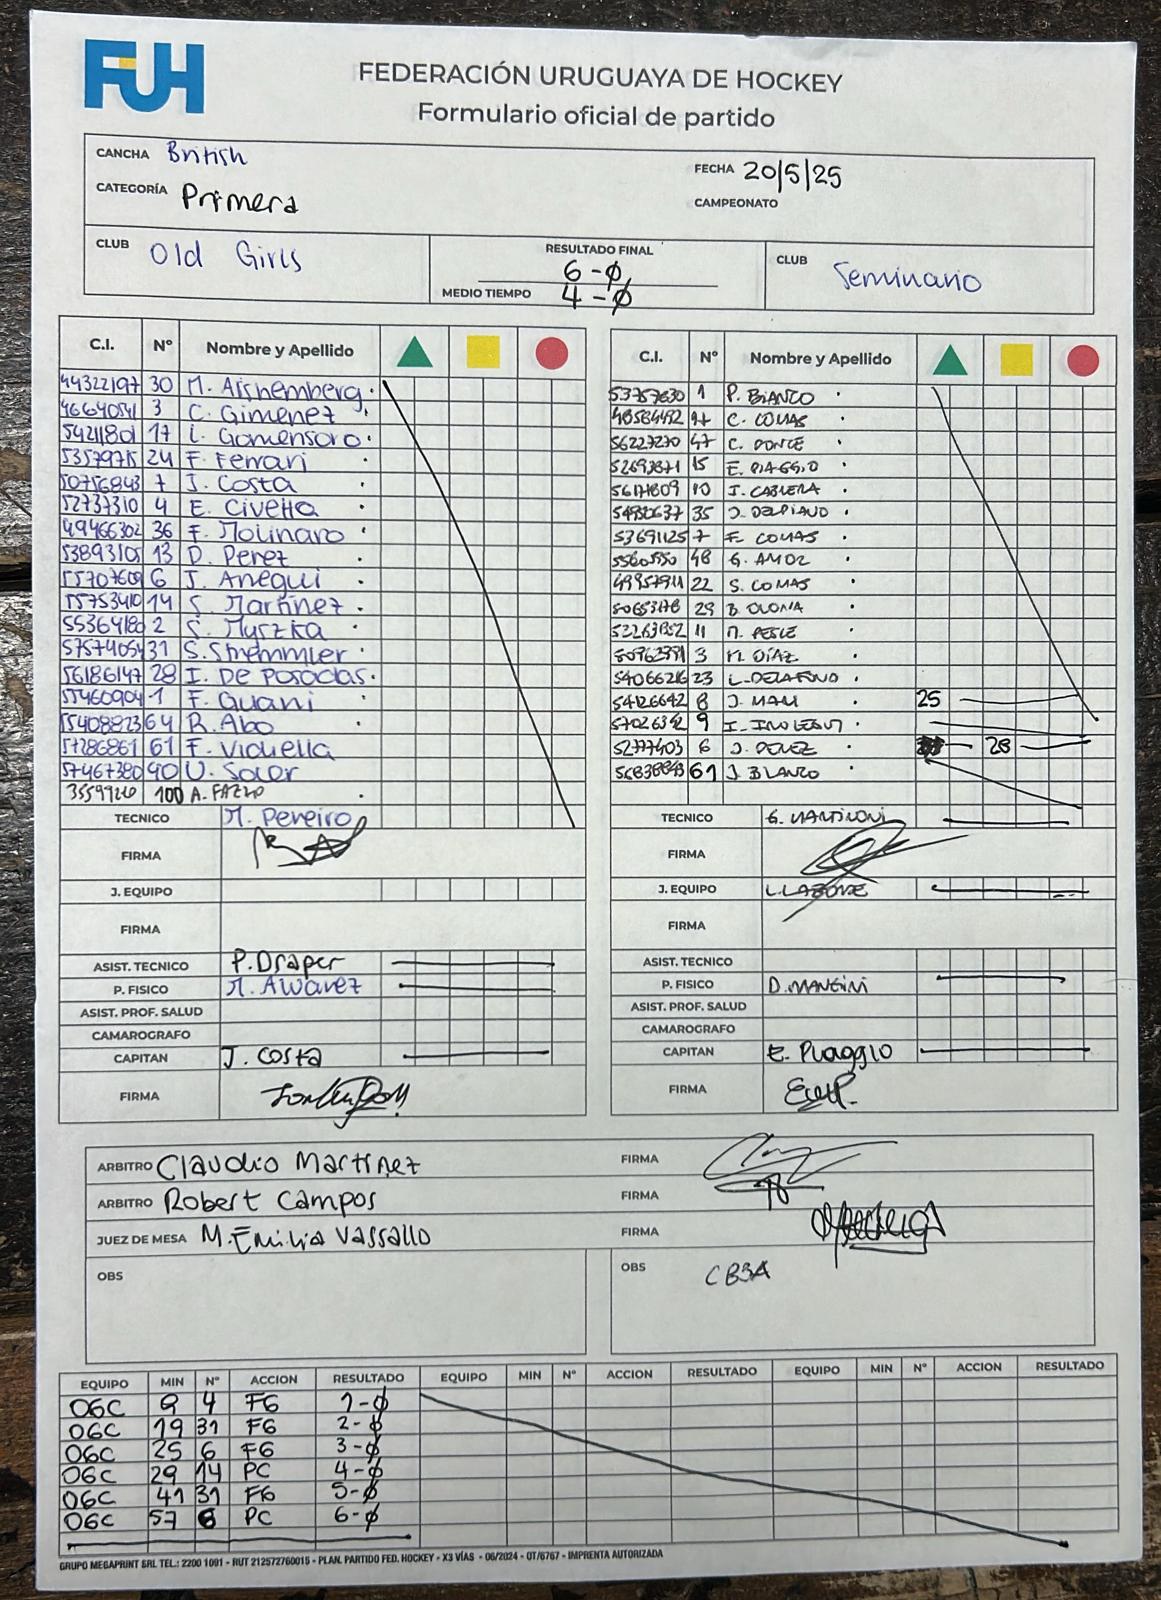 FUH
FEDERACIÓN URUGUAYA DE HOCKEY
Formulario oficial de partido
CANCHA British
FECHA 20/5/25
CATEGORÍA Primera
CAMPEONATO
CLUB Old Girls
RESULTADO FINAL 6-0
MEDIO TIEMPO 4-0
CLUB Seminario
C.I. Nº Nombre y Apellido
44322197 30 M. Aishemberg
3 C. Gimenez
17 L. Gomensoro
24 F. Ferrari
7 J. Costa
52737310 4 E. Civetta
49466302 36 F. Molinaro
53893105 13 D. Perez
55707609 6 J. Anegui
55753410 14 S. Martinez
2 S. Myszka
31 S. Stremmler
56186147 28 I. De Posadas
55460904 1 F. Guani
55408823 64 R. Abo
57286861 61 F. Vidiella
57467380 40 U. Soler
100 A. FAZZO
TECNICO M. Pereiro
FIRMA
J. EQUIPO
FIRMA
ASIST. TECNICO P. Draper
P. FISICO M. Alvarez
ASIST. PROF. SALUD
CAMAROGRAFO
CAPITAN J. Costa
FIRMA
C.I. Nº Nombre y Apellido
53757630 1 P. BIANCO
C. COMAS
56227270 47 C. PONCE
15 E. PIAGGIO
10 J. CABRERA
35
53691125 7 F. COMAS
48
22 S. COMAS
29
11
3 M. DÍAZ
54066216 23
54126642 8 25
9
52777403 6 J. PEREZ 28
61 J. BLANCO
TECNICO
FIRMA
J. EQUIPO
FIRMA
ASIST. TECNICO
P. FISICO D. MANGINI
ASIST. PROF. SALUD
CAMAROGRAFO
CAPITAN E. Piaggio
FIRMA
ARBITRO Claudio Martinez FIRMA
ARBITRO Robert Campos FIRMA
JUEZ DE MESA M. Emilia Vassallo FIRMA
OBS
OBS
EQUIPO MIN Nº ACCION RESULTADO EQUIPO MIN Nº ACCION RESULTADO EQUIPO MIN Nº ACCION RESULTADO
OGC 9 4 FG 1-0
OGC 19 31 FG 2-0
OGC 25 6 FG 3-0
OGC 29 14 PC 4-0
OGC 41 31 FG 5-0
OGC 57 PC 6-0
GRUPO MEGAPRINT SRL TEL.: 2200 1091 - RUT 212572760015 - PLAN. PARTIDO FED. HOCKEY - X3 VÍAS - 06/2024 - OT/6767 - IMPRENTA AUTORIZADA